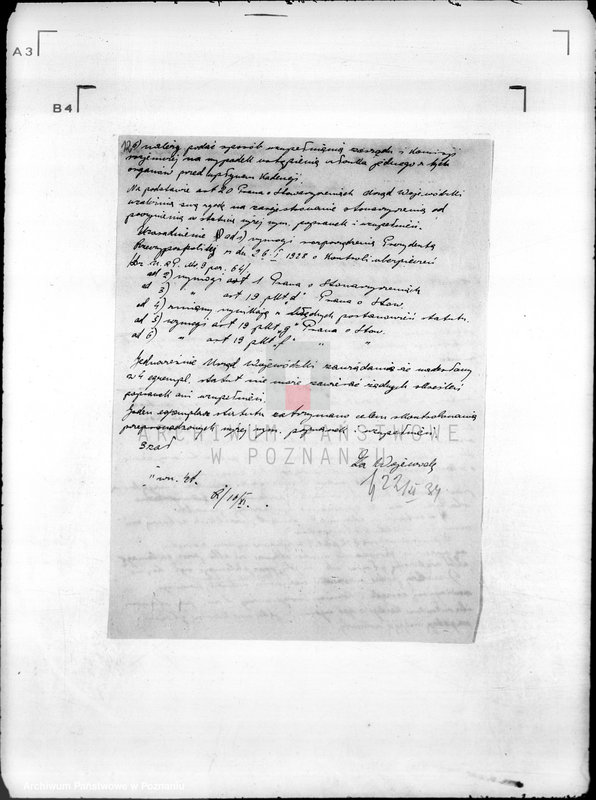 A3
B4
należy podać sposób uzupełnienia zarządu i Komisji
rewizyjnej na wypadek ustąpienia członka jednego z tych
organów przed upływem Kadencji.
Na podstawie art 20 Prawa o Stowarzyszeniach Urząd Wojewódzki
zarejestrowanie stowarzyszenia od
poczynienia w statucie wyżej wym. poprawek i uzupełnień.
Uzasadnienie ad 1) wymogi rozporządzenia Prezydenta
Rzeczypospolitej z dn. 26 I 1928 o Kontroli ubezpieczeń
/Dz. U. R. P. No 9 poz. 64/
ad 2) wymogi art 1 Prawa o Stowarzyszeniach
ad 3) " art 19 pkt "d" Prawa o Stow.
ad 4) zmiany wynikają z postanowień statutu
ad 5) wymogi art 19 pkt "g" Prawa o Stow.
ad 6) " art 19 pkt "f" " "
Jednocześnie Urząd Wojewódzki zawiadamia że nadesłany
w 4 egzempl. statut nie może zawierać żadnych skreśleń,
poprawek ani uzupełnień.
Jeden egzemplarz statutu zatrzymano celem skontrolowania
przeprowadzonych wyżej wym. poprawek i uzupełnień.
Za Wojewodę
22/XI 34
10/XI.
ARCHIWUM PAŃSTWOWE
W POZNANIU
Archiwum Państwowe w Poznaniu